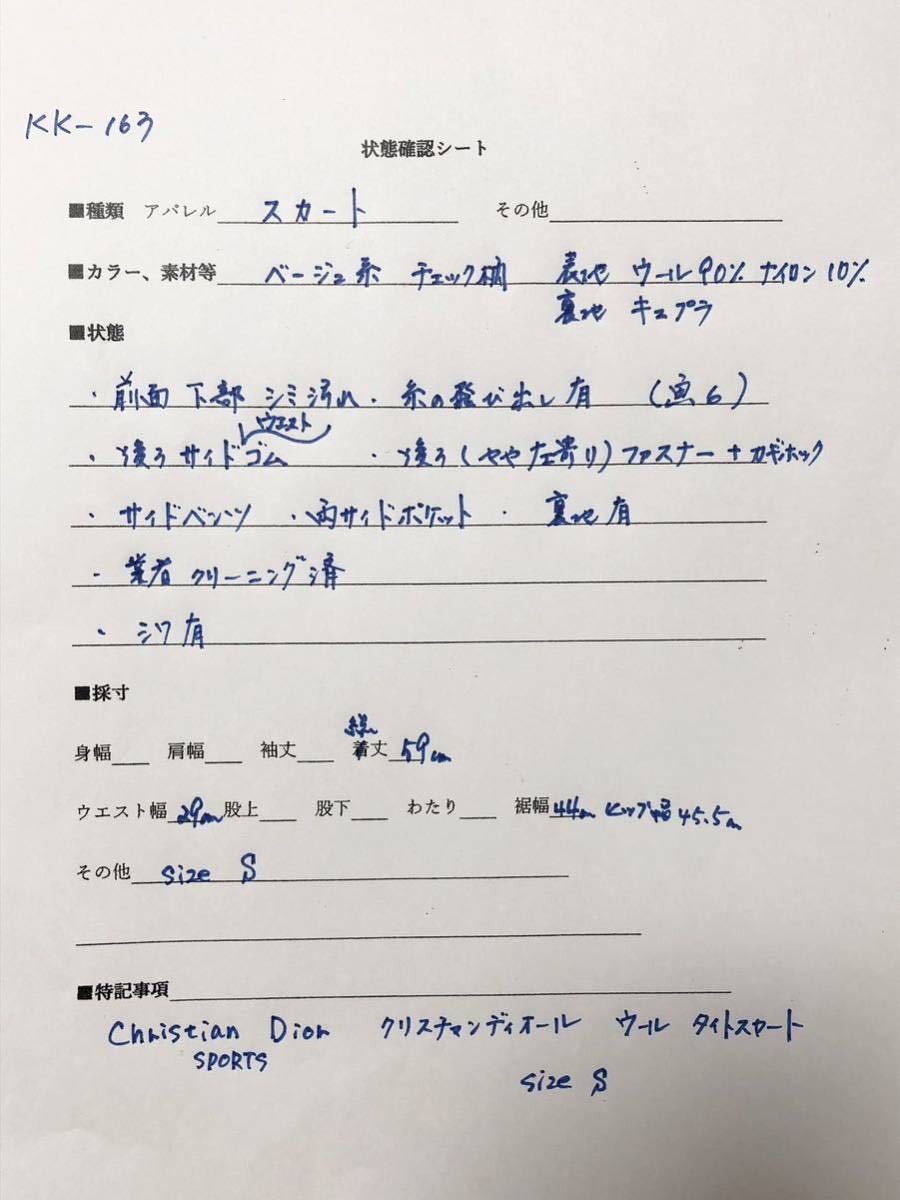 KK-163
状態確認シート
■種類 アパレル スカート その他
■カラー、素材等 ベージュ系 チェック柄 表地 ウール90% ナイロン10%
裏地 キュプラ
■状態
・前面 下部 シミ汚れ・糸の飛び出し有
ウエスト
・後ろサイドゴム ・後ろ(やや左寄り)ファスナー+カギホック
・サイドベンツ ・両サイドポケット ・裏地有
・業者クリーニング済
・シワ有
■採寸
総
身幅 肩幅 袖丈 着丈 59cm
ウエスト幅 29cm 股上 股下 わたり 裾幅 44cm ヒップ幅 45.5cm
その他 size S
■特記事項
Christian Dior クリスチャンディオール ウール タイトスカート
SPORTS
size S